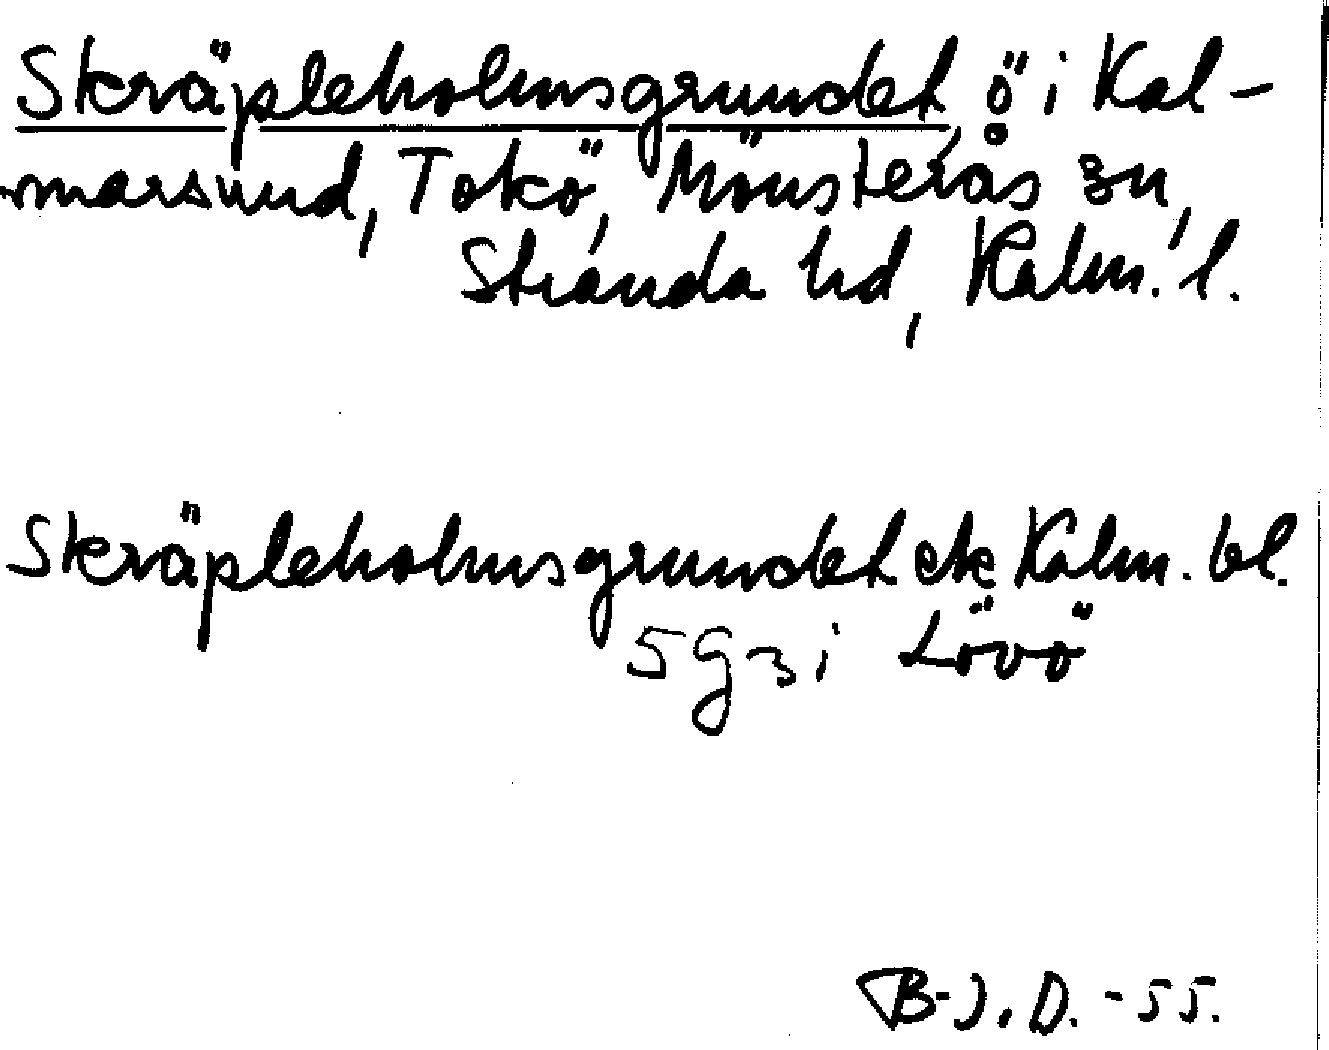 Skräpleholmsgrundet, ö i Kal-
marsund, Tokö, Mönsterås sn,
Stranda hd, Kalm. l.
Skräpleholmsgrundet ek Kalm. bl.
5g3i Lövö
B-J. D. -55.